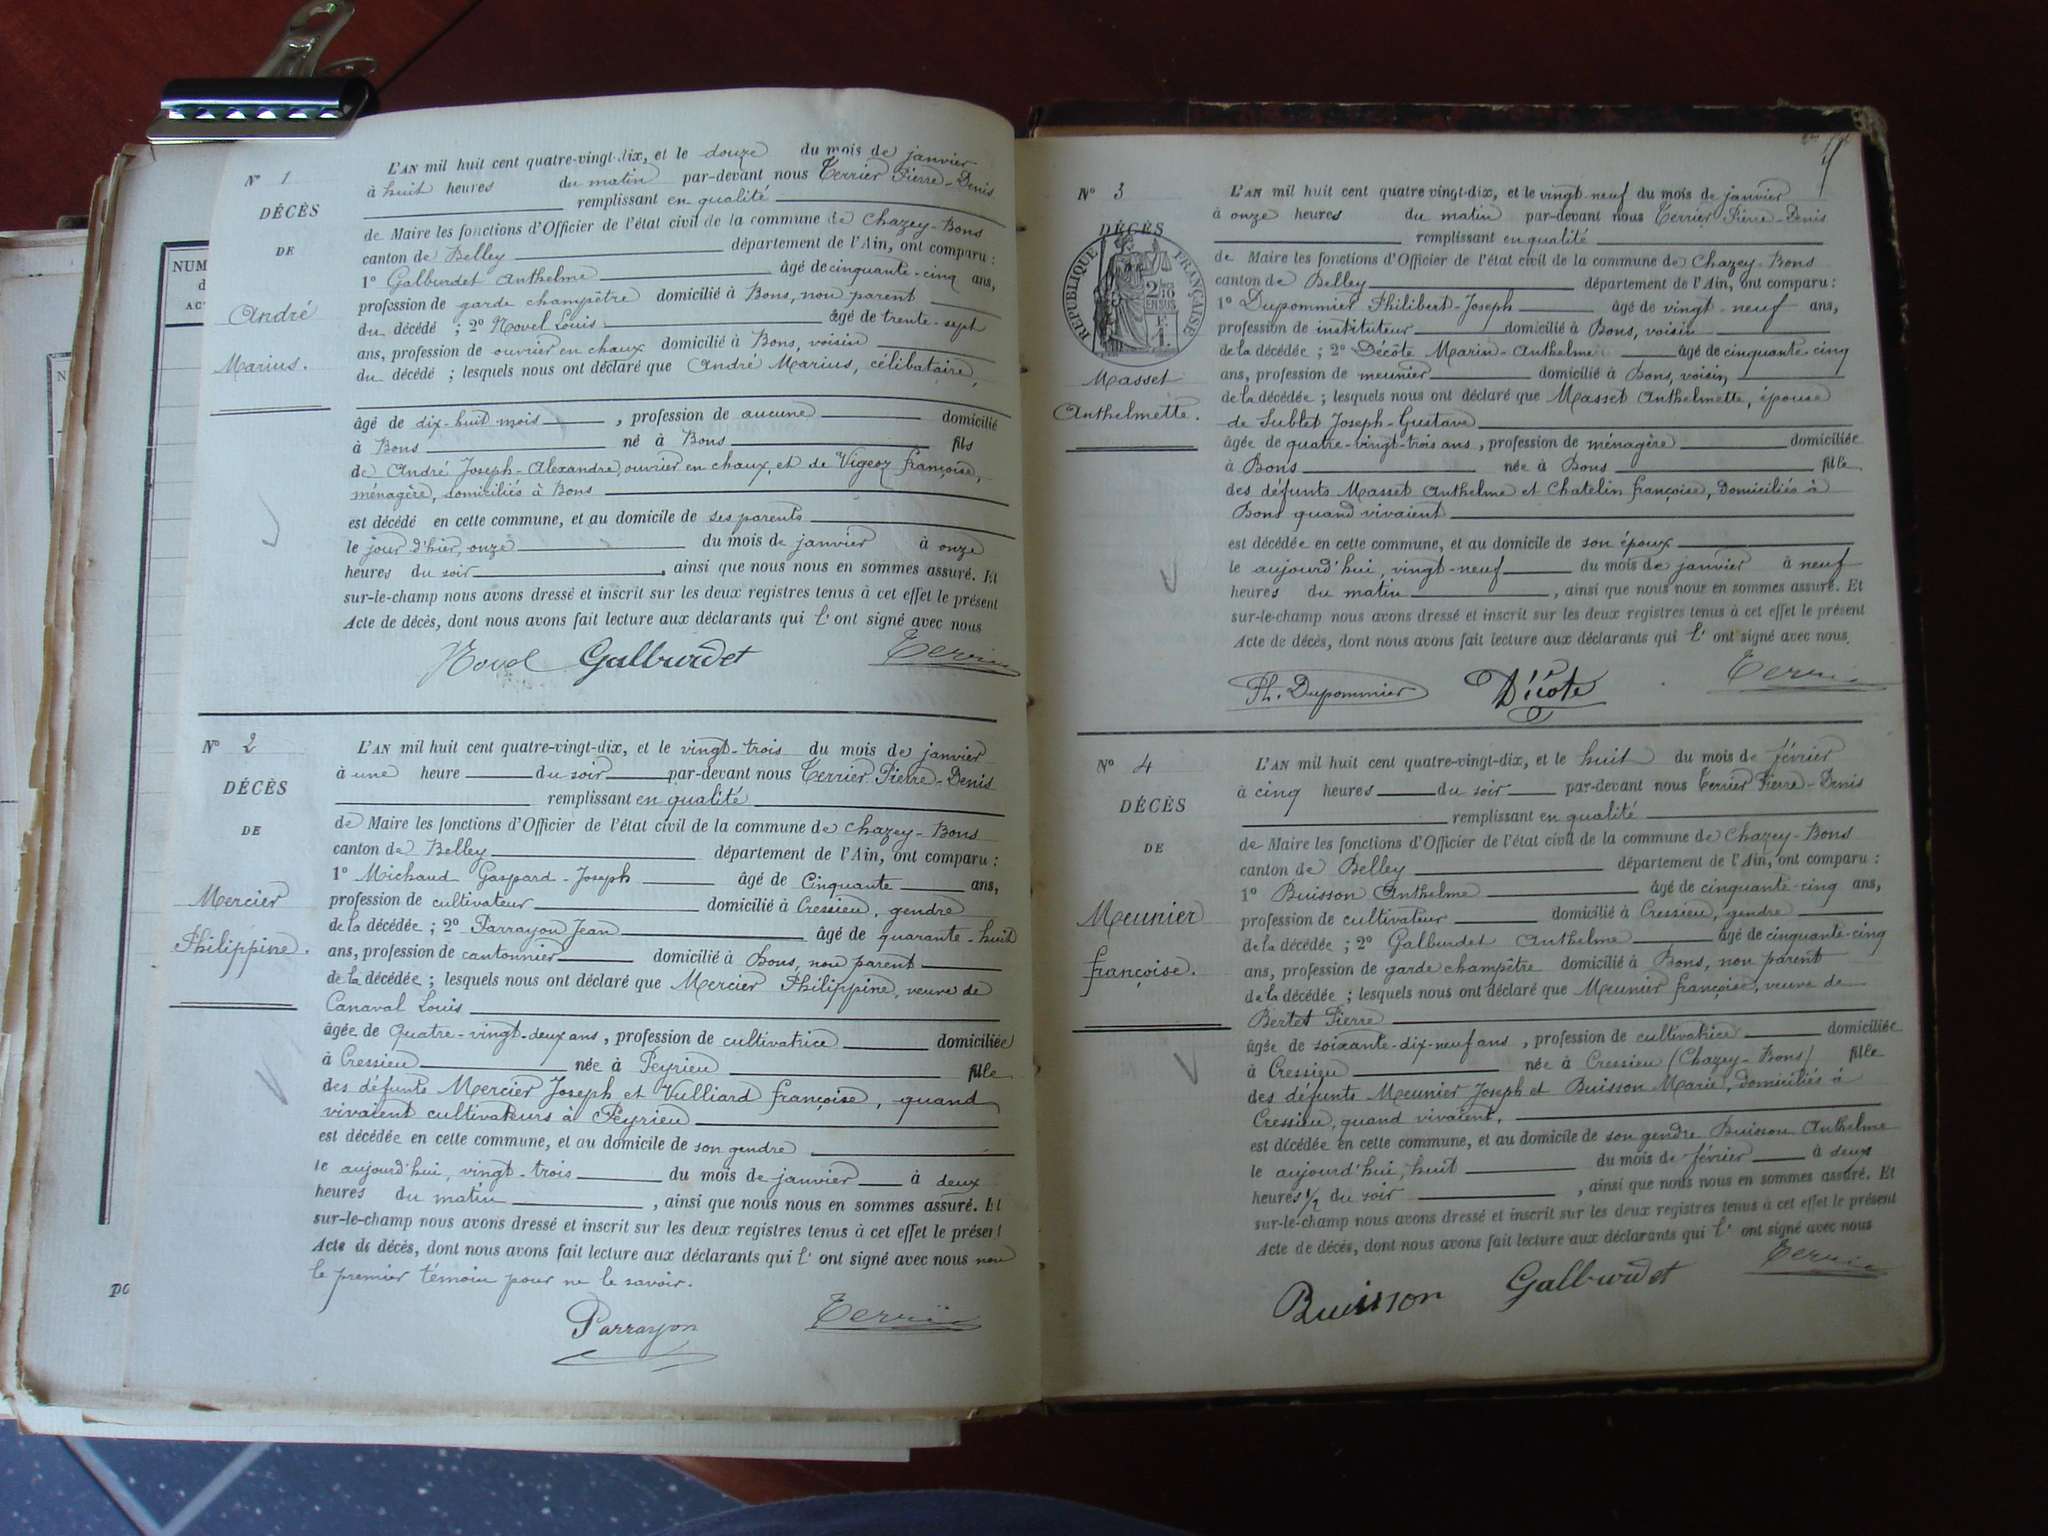 NUM
d
AC
N
PO
N° 1
DÉCÈS
DE
André
Marius.
L'AN mil huit cent quatre-vingt-dix, et le douze du mois de janvier
à huit heures du matin par-devant nous Terrier Pierre-Denis
remplissant en qualité
de Maire les fonctions d'Officier de l'état civil de la commune de Chazey-Bons
canton de Belley département de l'Ain, ont comparu :
1° Galburdet Anthelme âgé de cinquante-cinq ans,
profession de garde champêtre domicilié à Bons, non parent
du décédé ; 2° Novel Louis âgé de trente-sept
ans, profession de ouvrier en chaux domicilié à Bons, voisin
du décédé ; lesquels nous ont déclaré que André Marius, célibataire,
âgé de dix-huit mois , profession de aucune domicilié
à Bons né à Bons fils
de André Joseph-Alexandre, ouvrier en chaux, et de Vigeoz françoise,
ménagère, domiciliés à Bons
est décédé en cette commune, et au domicile de ses parents
le jour d'hier, onze du mois de janvier à onze
heures du soir , ainsi que nous nous en sommes assuré. Et
sur-le-champ nous avons dressé et inscrit sur les deux registres tenus à cet effet le présent
Acte de décès, dont nous avons fait lecture aux déclarants qui l' ont signé avec nous
Novel Galburdet Terrier
N° 2
DÉCÈS
DE
Mercier
Philippine.
L'AN mil huit cent quatre-vingt-dix, et le vingt-trois du mois de janvier
à une heure du soir par-devant nous Terrier Pierre-Denis
remplissant en qualité
de Maire les fonctions d'Officier de l'état civil de la commune de Chazey-Bons
canton de Belley département de l'Ain, ont comparu :
1° Michaud Gaspard-Joseph âgé de Cinquante ans,
profession de cultivateur domicilié à Cressieu, gendre
de la décédée ; 2° Parrayon Jean âgé de quarante-huit
ans, profession de cantonnier domicilié à Bons, non parent
de la décédée ; lesquels nous ont déclaré que Mercier Philippine, veuve de
Canaval Louis
âgée de Quatre-vingt-deux ans, profession de cultivatrice domiciliée
à Cressieu née à Peyrieu fille
des défunts Mercier Joseph et Vulliard françoise, quand
vivaient cultivateurs à Peyrieu
est décédée en cette commune, et au domicile de son gendre
le aujourd'hui, vingt-trois du mois de janvier à deux
heures du matin , ainsi que nous nous en sommes assuré. Et
sur-le-champ nous avons dressé et inscrit sur les deux registres tenus à cet effet le présent
Acte de décès, dont nous avons fait lecture aux déclarants qui l' ont signé avec nous non
le premier témoin pour ne le savoir.
Parrayon Terrier
N° 3
DÉCÈS
RÉPUBLIQUE FRANÇAISE
2/10
EN SUS
F.
1.
Masset
Anthelmette.
L'AN mil huit cent quatre vingt-dix, et le vingt neuf du mois de janvier
à onze heures du matin par-devant nous Terrier Pierre-Denis
remplissant en qualité
de Maire les fonctions d'Officier de l'état civil de la commune de Chazey-Bons
canton de Belley département de l'Ain, ont comparu :
1° Dupommier Philibert-Joseph âgé de vingt-neuf ans,
profession de instituteur domicilié à Bons, voisin
de la décédée ; 2° Décôte Marin-Anthelme âgé de cinquante-cinq
ans, profession de meunier domicilié à Bons, voisin,
de la décédée ; lesquels nous ont déclaré que Masset Anthelmette, épouse
de Sublet Joseph-Gustave
âgée de quatre-vingt-trois ans, profession de ménagère domiciliée
à Bons née à Bons fille
des défunts Masset Anthelme et Chatelin françoise, domiciliés à
Bons quand vivaient
est décédée en cette commune, et au domicile de son époux
le aujourd'hui, vingt-neuf du mois de janvier à neuf
heures du matin , ainsi que nous nous en sommes assuré. Et
sur-le-champ nous avons dressé et inscrit sur les deux registres tenus à cet effet le présent
Acte de décès, dont nous avons fait lecture aux déclarants qui l' ont signé avec nous.
Ph. Dupommier Décote Terrier
N° 4
DÉCÈS
DE
Meunier
françoise.
L'AN mil huit cent quatre-vingt-dix, et le huit du mois de février
à cinq heures du soir par-devant nous Terrier Pierre-Denis
remplissant en qualité
de Maire les fonctions d'Officier de l'état civil de la commune de Chazey-Bons
canton de Belley département de l'Ain, ont comparu :
1° Buisson Anthelme âgé de cinquante-cinq ans,
profession de cultivateur domicilié à Cressieu, gendre
de la décédée ; 2° Galburdet Anthelme âgé de cinquante-cinq
ans, profession de garde champêtre domicilié à Bons, non parent
de la décédée ; lesquels nous ont déclaré que Meunier françoise, veuve de
Bertet Pierre
âgée de soixante-dix-neuf ans , profession de cultivatrice domiciliée
à Cressieu née à Cressieu (Chazey-Bons) fille
des défunts Meunier Joseph et Buisson Marie, domiciliés à
Cressieu, quand vivaient,
est décédée en cette commune, et au domicile de son gendre Buisson Anthelme
le aujourd'hui, huit du mois de février à deux
heures 1/2 du soir , ainsi que nous nous en sommes assuré. Et
sur-le-champ nous avons dressé et inscrit sur les deux registres tenus à cet effet le présent
Acte de décès, dont nous avons fait lecture aux déclarants qui l' ont signé avec nous
Buisson Galburdet Terrier